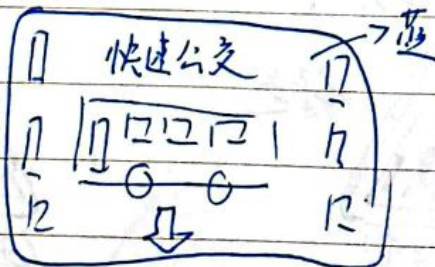 快速公交
蓝